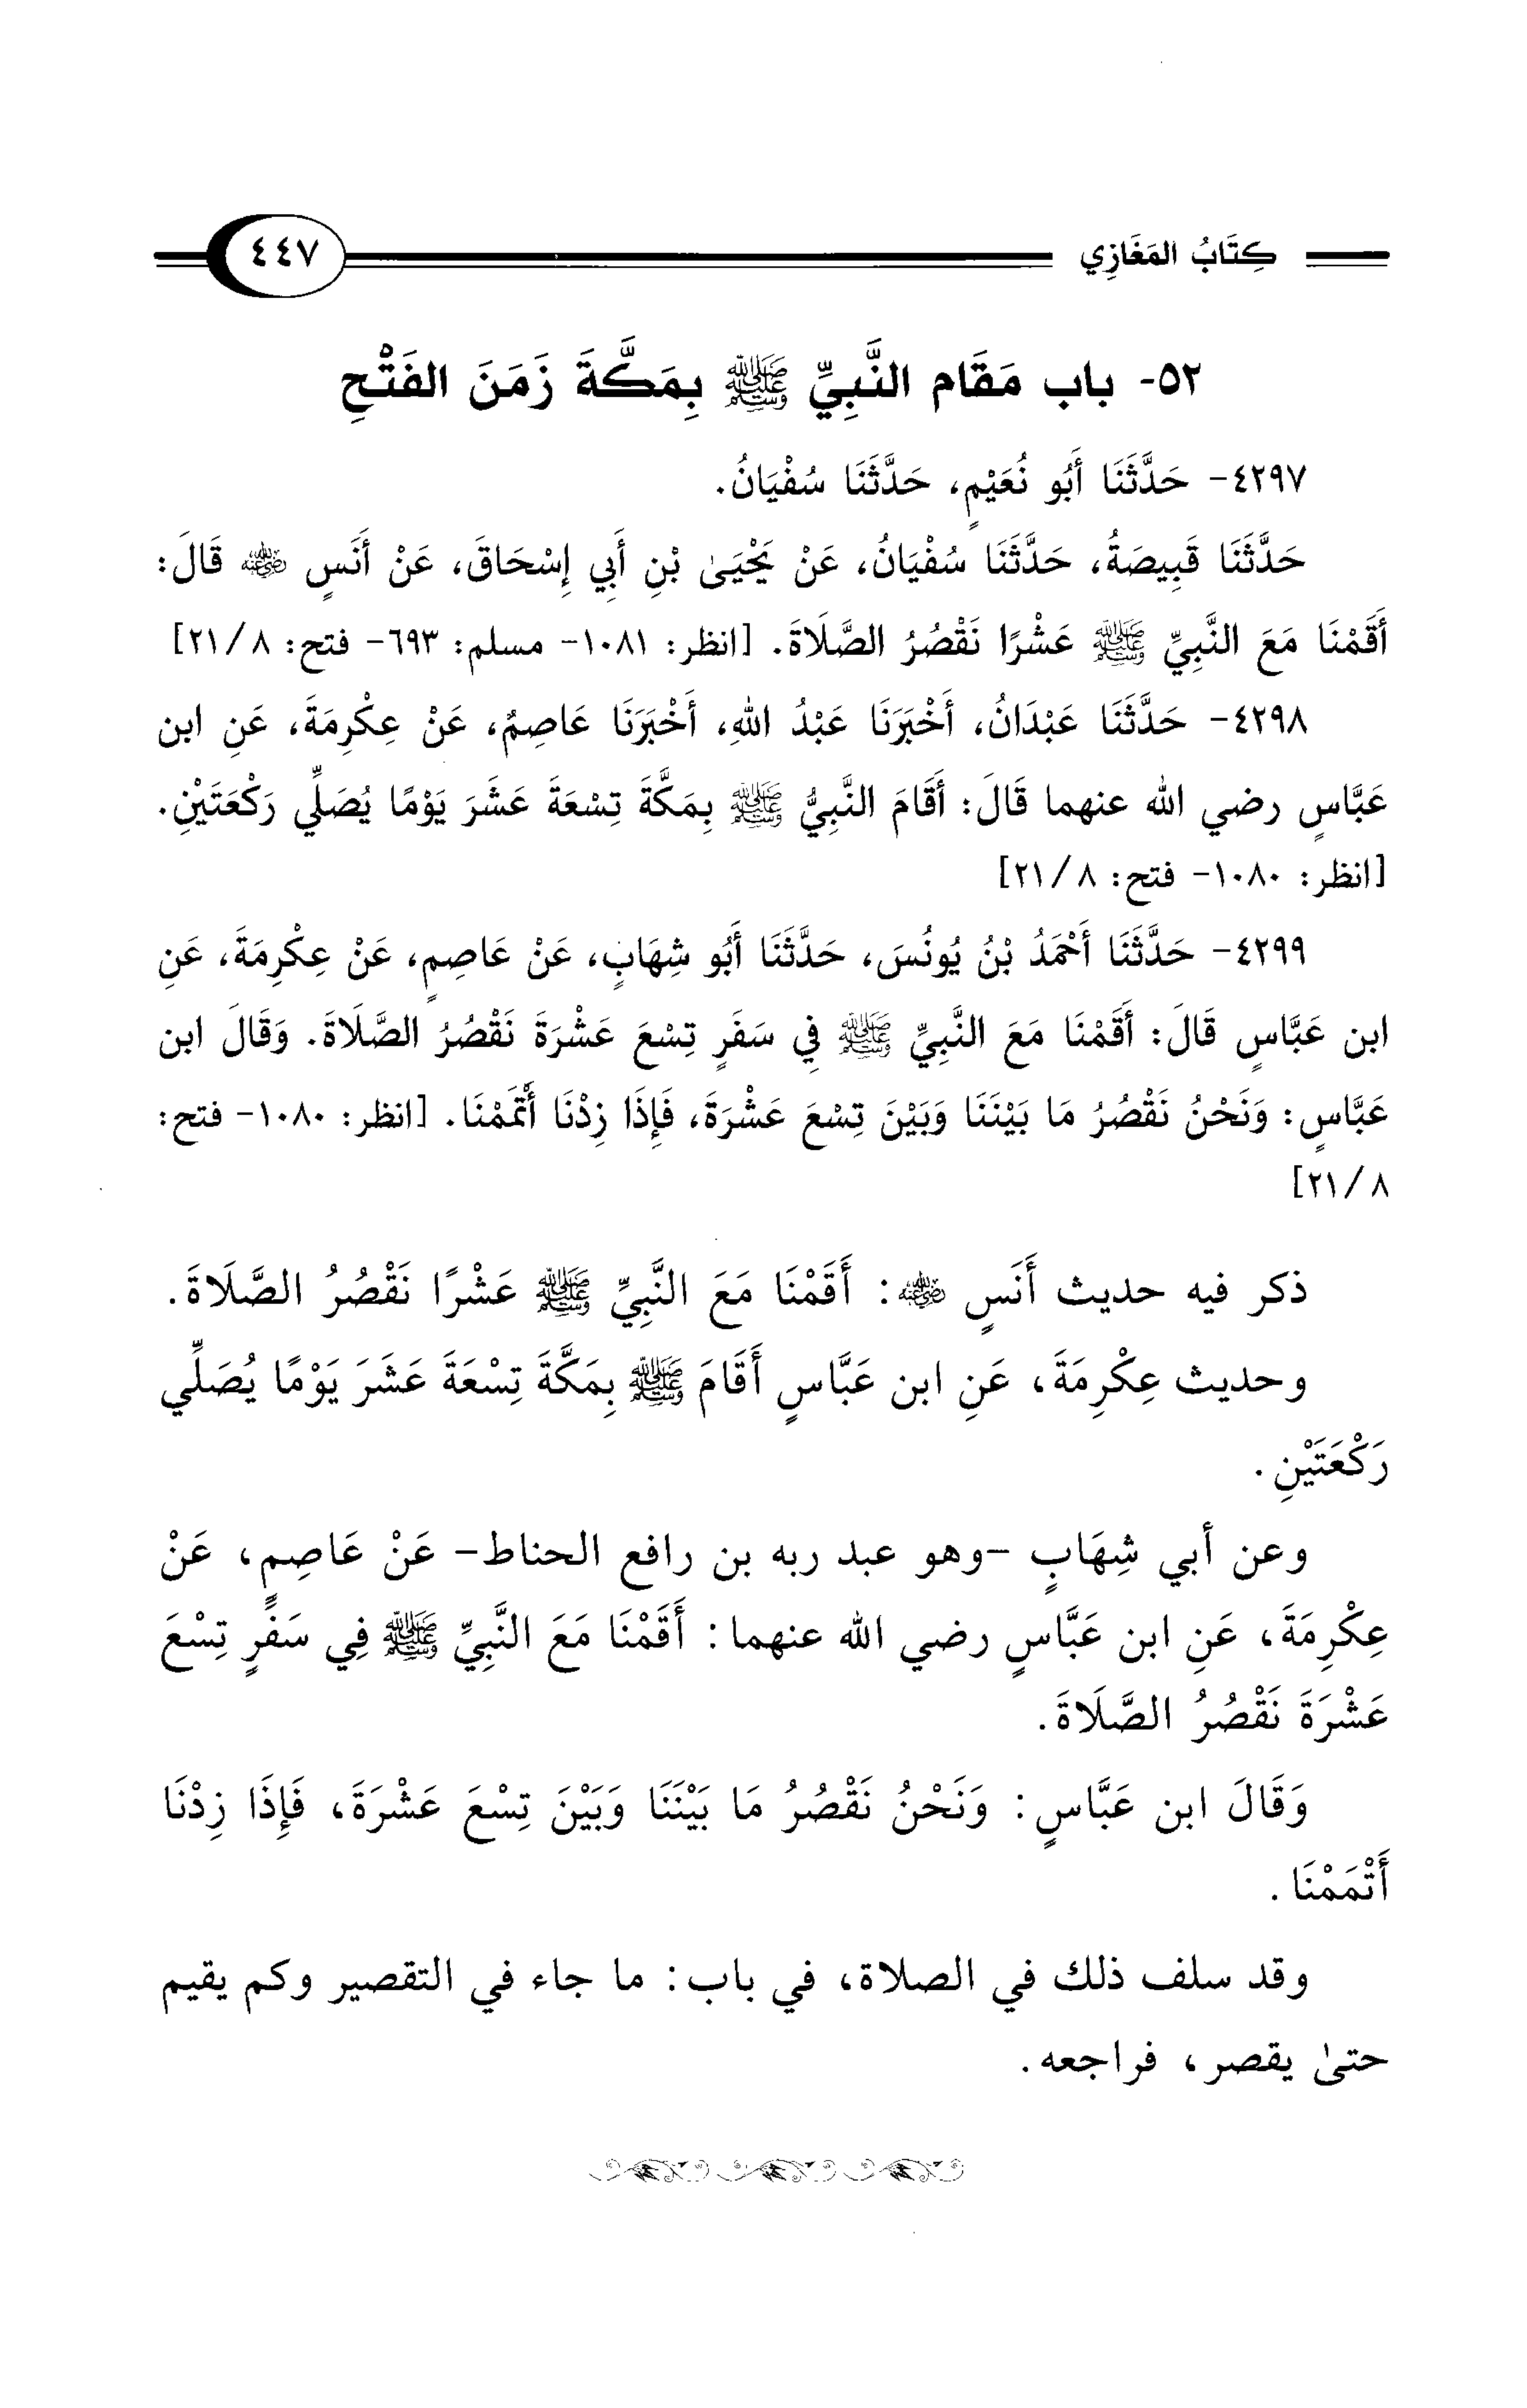 كِتَابُ المَغَازِي ٤٤٧
٥٢- باب مَقَام النَّبِيِّ ﷺ بِمَكَّةَ زَمَنَ الفَتْحِ
٤٢٩٧- حَدَّثَنَا أَبُو نُعَيْمٍ، حَدَّثَنَا سُفْيَانُ.
حَدَّثَنَا قَبِيصَةُ، حَدَّثَنَا سُفْيَانُ، عَنْ يَحْيَىٰ بْنِ أَبِي إِسْحَاقَ، عَنْ أَنَسٍ رضي الله عنه قَالَ:
أَقَمْنَا مَعَ النَّبِيِّ ﷺ عَشْرًا نَقْصُرُ الصَّلَاةَ. [انظر: ١٠٨١- مسلم: ٦٩٣- فتح: ٨/ ٢١]
٤٢٩٨- حَدَّثَنَا عَبْدَانُ، أَخْبَرَنَا عَبْدُ اللهِ، أَخْبَرَنَا عَاصِمٌ، عَنْ عِكْرِمَةَ، عَنِ ابن
عَبَّاسٍ رضي الله عنهما قَالَ: أَقَامَ النَّبِيُّ ﷺ بِمَكَّةَ تِسْعَةَ عَشَرَ يَوْمًا يُصَلِّي رَكْعَتَيْنِ.
[انظر: ١٠٨٠- فتح: ٨/ ٢١]
٤٢٩٩- حَدَّثَنَا أَحْمَدُ بْنُ يُونُسَ، حَدَّثَنَا أَبُو شِهَابٍ، عَنْ عَاصِمٍ، عَنْ عِكْرِمَةَ، عَنِ
ابن عَبَّاسٍ قَالَ: أَقَمْنَا مَعَ النَّبِيِّ ﷺ فِي سَفَرٍ تِسْعَ عَشْرَةَ نَقْصُرُ الصَّلَاةَ. وَقَالَ ابن
عَبَّاسٍ: وَنَحْنُ نَقْصُرُ مَا بَيْنَنَا وَبَيْنَ تِسْعَ عَشْرَةَ، فَإِذَا زِدْنَا أَتْمَمْنَا. [انظر: ١٠٨٠- فتح:
٨/ ٢١]
ذكر فيه حديث أَنَسٍ رضي الله عنه: أَقَمْنَا مَعَ النَّبِيِّ ﷺ عَشْرًا نَقْصُرُ الصَّلَاةَ.
وحديث عِكْرِمَةَ، عَنِ ابن عَبَّاسٍ أَقَامَ ﷺ بِمَكَّةَ تِسْعَةَ عَشَرَ يَوْمًا يُصَلِّي
رَكْعَتَيْنِ.
وعن أبي شِهَابٍ -وهو عبد ربه بن رافع الحناط- عَنْ عَاصِمٍ، عَنْ
عِكْرِمَةَ، عَنِ ابن عَبَّاسٍ رضي الله عنهما: أَقَمْنَا مَعَ النَّبِيِّ ﷺ فِي سَفَرٍ تِسْعَ
عَشْرَةَ نَقْصُرُ الصَّلَاةَ.
وَقَالَ ابن عَبَّاسٍ: وَنَحْنُ نَقْصُرُ مَا بَيْنَنَا وَبَيْنَ تِسْعَ عَشْرَةَ، فَإِذَا زِدْنَا
أَتْمَمْنَا.
وقد سلف ذلك في الصلاة، في باب: ما جاء في التقصير وكم يقيم
حتىٰ يقصر، فراجعه.